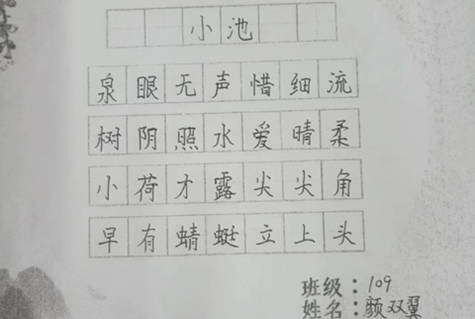 小池
泉眼无声惜细流
树阴照水爱晴柔
小荷才露尖尖角
早有蜻蜓立上头
班级：109
姓名：颜双翼